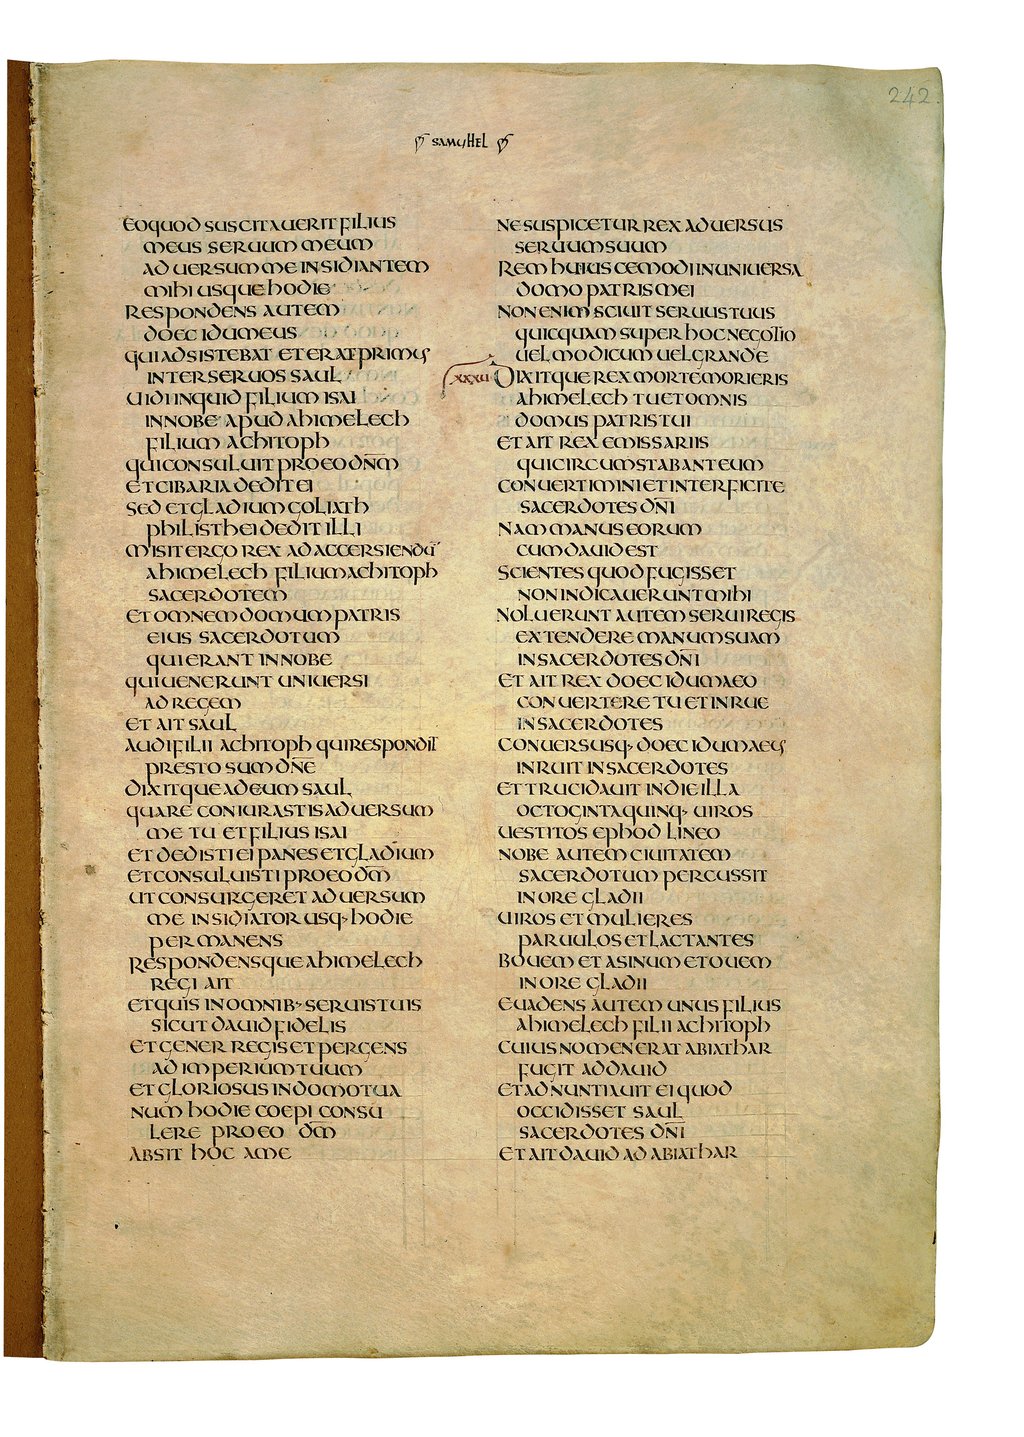 242.
SAMUHEL
EOQUOD SUSCITAUERIT FILIUS
MEUS SERUUM MEUM
ADUERSUM ME INSIDIANTEM
MIHI USQUE HODIE
RESPONDENS AUTEM
DOEC IDUMEUS
QUI ADSISTEBAT ET ERAT PRIMUS
INTER SERUOS SAUL
UIDI INQUID FILIUM ISAI
IN NOBE APUD AHIMELECH
FILIUM ACHITOPH
QUI CONSULUIT PRO EO DN̅M
ET CIBARIA DEDIT EI
SED ET GLADIUM GOLIATH
PHILISTHEI DEDIT ILLI
MISIT ERGO REX AD ACCERSIENDU̅
AHIMELECH FILIUM ACHITOPH
SACERDOTEM
ET OMNEM DOMUM PATRIS
EIUS SACERDOTUM
QUI ERANT IN NOBE
QUI UENERUNT UNIUERSI
AD REGEM
ET AIT SAUL
AUDI FILII ACHITOPH QUI RESPONDIT
PRESTO SUM DN̅E
DIXITQUE AD EUM SAUL
QUARE CONIURASTIS ADUERSUM
ME TU ET FILIUS ISAI
ET DEDISTI EI PANES ET GLADIUM
ET CONSULUISTI PRO EO DM̅
UT CONSURGERET ADUERSUM
ME INSIDIATOR USQ· HODIE
PERMANENS
RESPONDENSQUE AHIMELECH
REGI AIT
ET QUIS IN OMNIB· SERUIS TUIS
SICUT DAUID FIDELIS
ET GENER REGIS ET PERGENS
AD IMPERIUM TUUM
ET GLORIOSUS IN DOMO TUA
NUM HODIE COEPI CONSU
LERE PRO EO DM̅
ABSIT HOC A ME
NE SUSPICETUR REX ADUERSUS
SERUUM SUUM
REM HUIUSCEMODI IN UNIUERSA
DOMO PATRIS MEI
NON ENIM SCIUIT SERUUS TUUS
QUICQUAM SUPER HOC NEGOTIO
UEL MODICUM UEL GRANDE
XXXU DIXITQUE REX MORTE MORIERIS
AHIMELECH TU ET OMNIS
DOMUS PATRIS TUI
ET AIT REX EMISSARIIS
QUI CIRCUMSTABANT EUM
CONUERTIMINI ET INTERFICITE
SACERDOTES DN̅I
NAM MANUS EORUM
CUM DAUID EST
SCIENTES QUOD FUGISSET
NON INDICAUERUNT MIHI
NOLUERUNT AUTEM SERUI REGIS
EXTENDERE MANUM SUAM
IN SACERDOTES DN̅I
ET AIT REX DOEC IDUMAEO
CONUERTERE TU ET INRUE
IN SACERDOTES
CONUERSUSQ· DOEC IDUMAEUS
INRUIT IN SACERDOTES
ET TRUCIDAUIT IN DIE ILLA
OCTOGINTA QUINQ· UIROS
UESTITOS EPHOD LINEO
NOBE AUTEM CIUITATEM
SACERDOTUM PERCUSSIT
IN ORE GLADII
UIROS ET MULIERES
PARUULOS ET LACTANTES
BOUEM ET ASINUM ET OUEM
IN ORE GLADII
EUADENS AUTEM UNUS FILIUS
AHIMELECH FILII ACHITOPH
CUIUS NOMEN ERAT ABIATHAR
FUGIT AD DAUID
ET ADNUNTIAUIT EI QUOD
OCCIDISSET SAUL
SACERDOTES DN̅I
ET AIT DAUID AD ABIATHAR